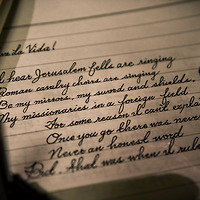 la Vida!
hear Jerusalem bells are ringing
Roman cavalry choirs are singing
Be my mirrors, my sword and shields,
My missionaries in a foreign field
For some reason I can't expla
Once you go there was never
Never an honest word
But that was when I rule